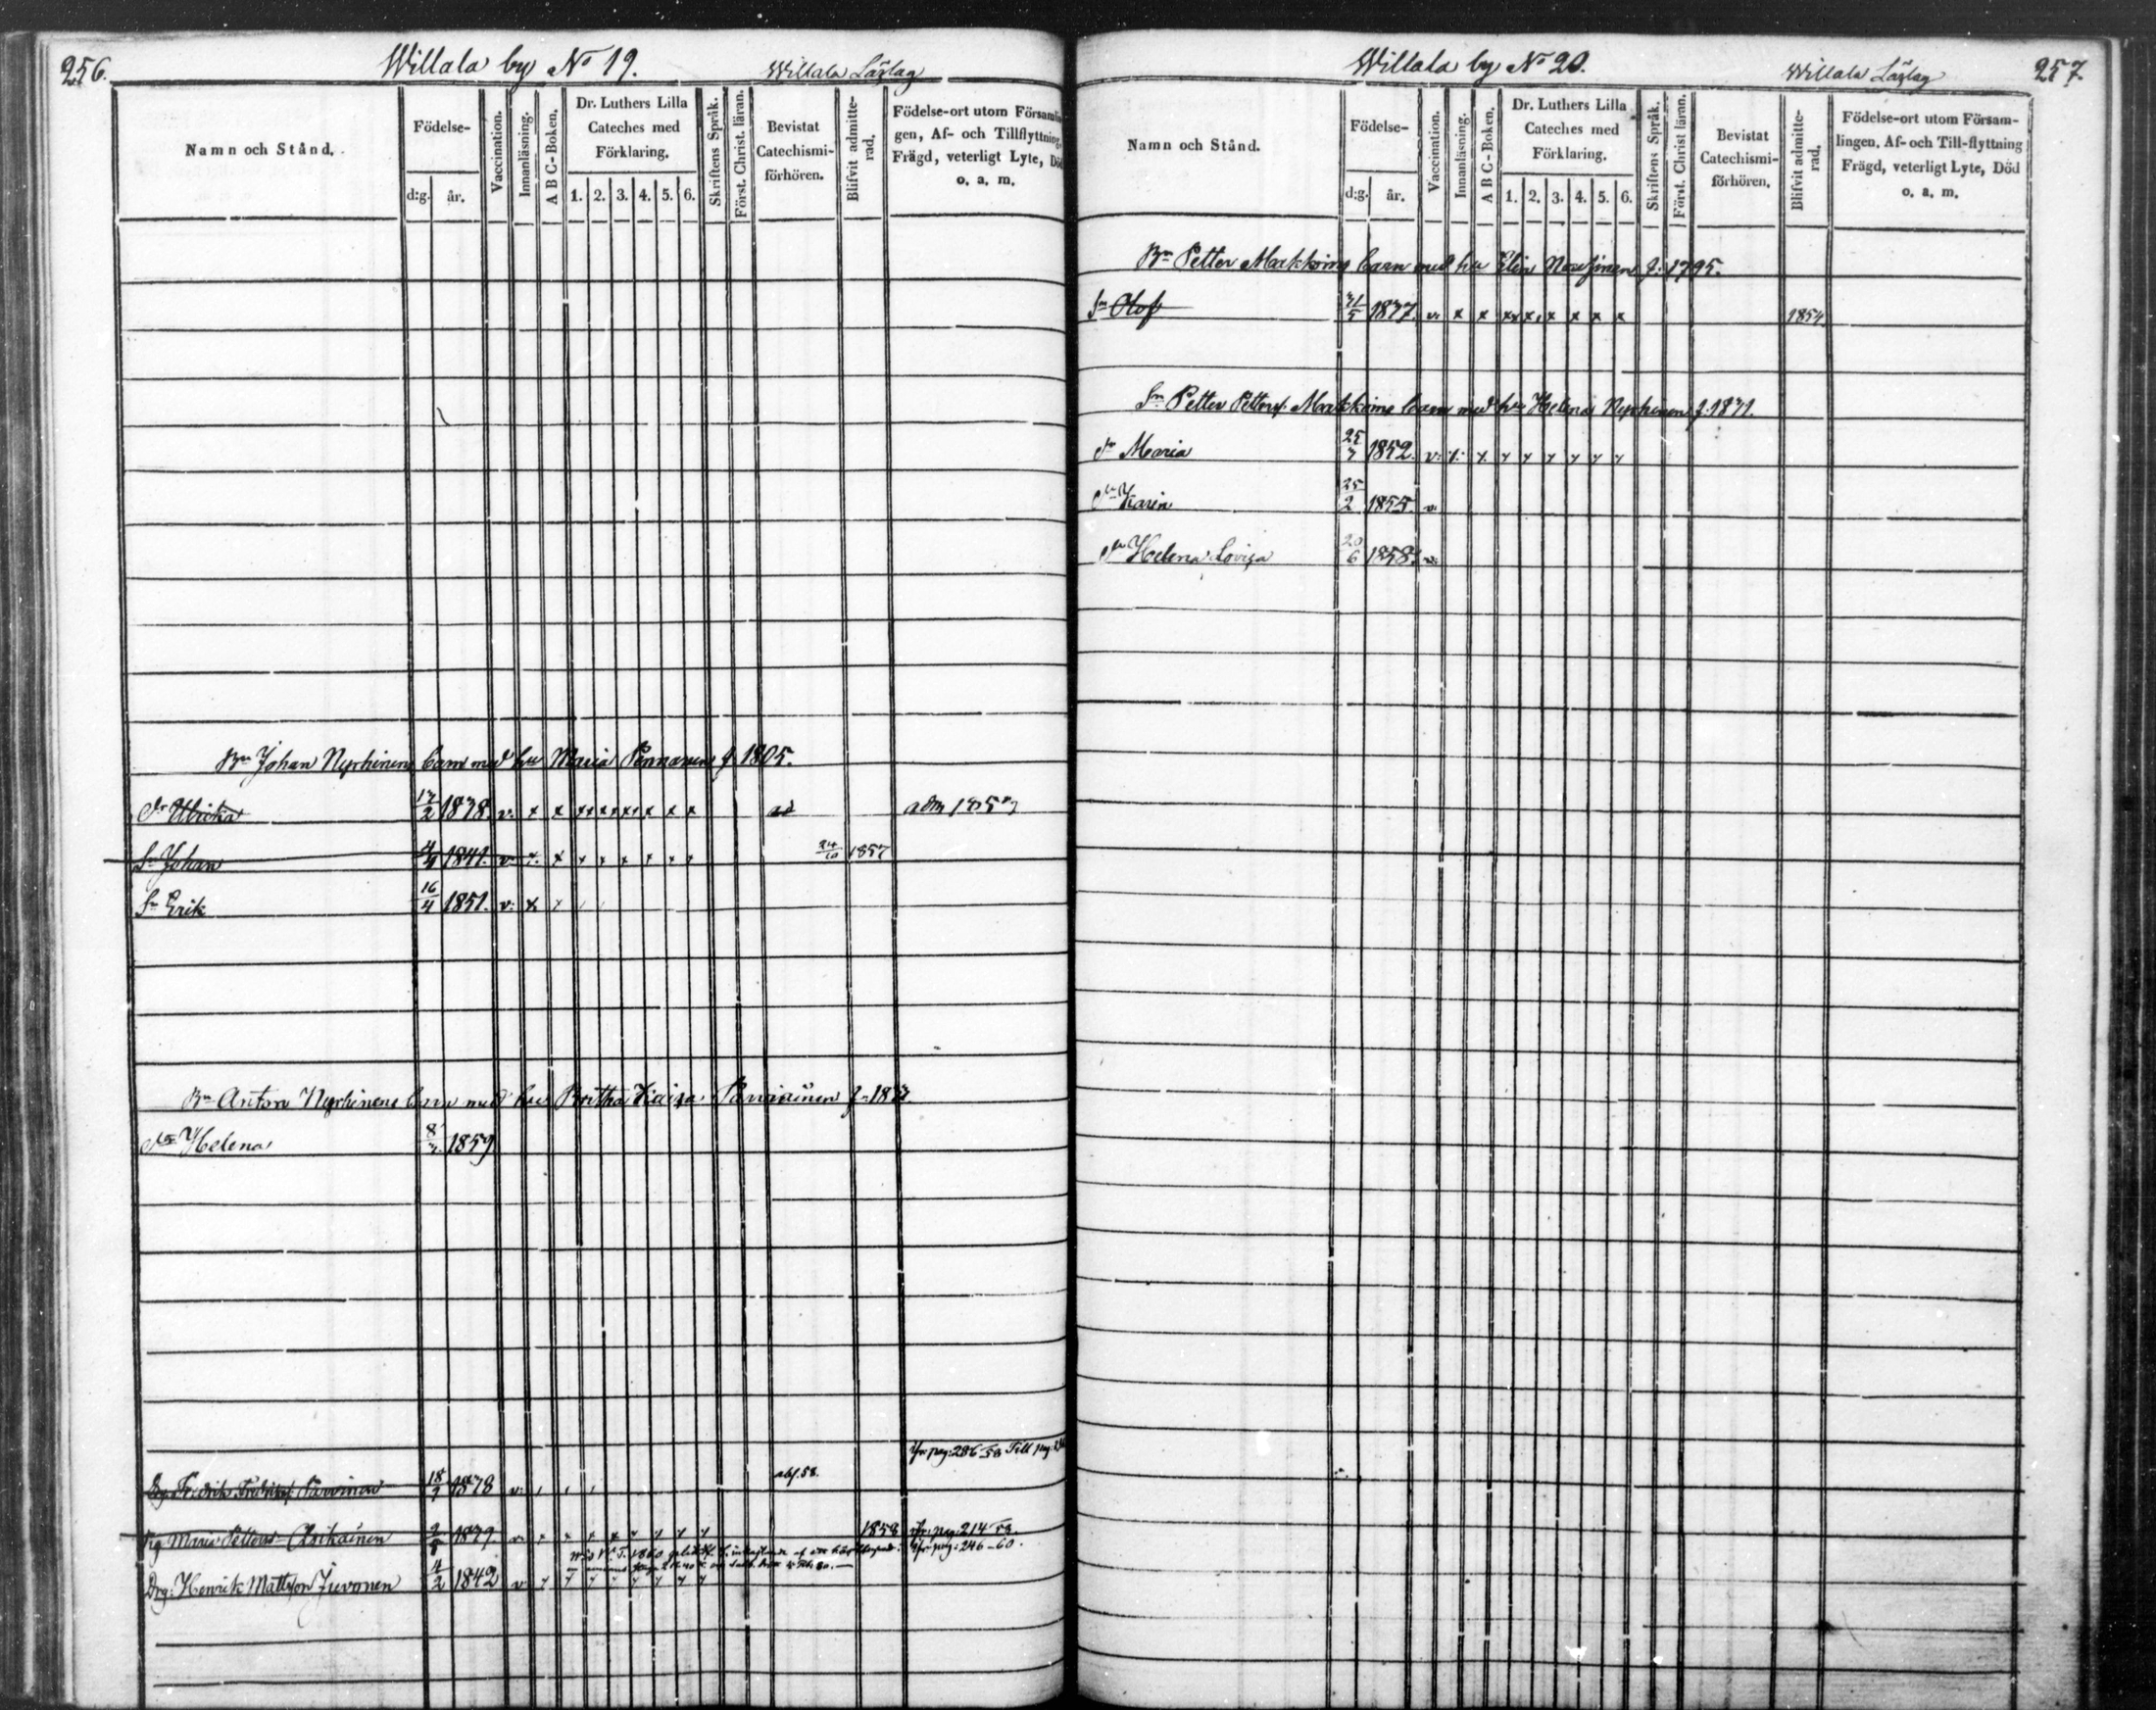 256.
Willala by No 19.
Willala Läslag
Namn och Stånd.
Födelse-
d:g. år.
Vaccination.
Innanläsning.
A B C-Boken.
Dr. Luthers Lilla
Cateches med
Förklaring.
1. 2. 3. 4. 5. 6.
Skriftens Språk.
Först. Christ. läran.
Bevistat
Catechismi-
förhören.
Blifvit admitte-
rad.
Födelse-ort utom Församlin
gen, Af- och Tillflyttning
Frägd, veterligt Lyte, Död
o. a. m.
Bn Johan Nyrhinens barn med hu Maria Pennanen f. 1805.
Dr Ulrika 17/2 1838. v. x x xx xx xx x x x ad adm 1857
Sn Johan 4/4 1841. v. x x x x x x x x 24/10 1857
Sn Erik 16/4 1851. v. x x
Bn Anton Nyrhinens barn med hu Britha f. 18
Dr Helena 8/7 1859
fr. pag: 286 58 Till pag.
Fredrik Parvinen 18/7 1838 v. abs. 58.
Pig. Maria Pettersd Asikainen 2/8 1839. v. x x x x x x x x 1858 fr. pag: 214 58.
fr. pag: 246-60.
Drg: Henrik Mattsson Juvonen 4/2 1842 v x x x x x x x x
Willala by No 20.
Willala Läslag
257.
Namn och Stånd.
Födelse-
d:g. år.
Vaccination.
Innanläsning.
A B C-Boken.
Dr. Luthers Lilla
Cateches med
Förklaring.
1. 2. 3. 4. 5. 6.
Skriftens Språk.
Först. Christ läran.
Bevistat
Catechismi-
förhören.
Blifvit admitte-
rad.
Födelse-ort utom Försam-
lingen, Af- och Till-flyttning
Frägd, veterligt Lyte, Död
o. a. m.
Bn Petter Markkoins barn med hu Elin f. 1795.
Sn Olof 31/5 1837. v. x x xx x x x x x 1854.
Sn Petter Petterss. Markkoins barn med hu Helena Nyrhinen f. 1831.
Dr Maria 25/7 1852. v. x x x x x x x x
Dr Karin 25/2 1855. v.
Dr Helena Lovisa 20/6 1858. v.